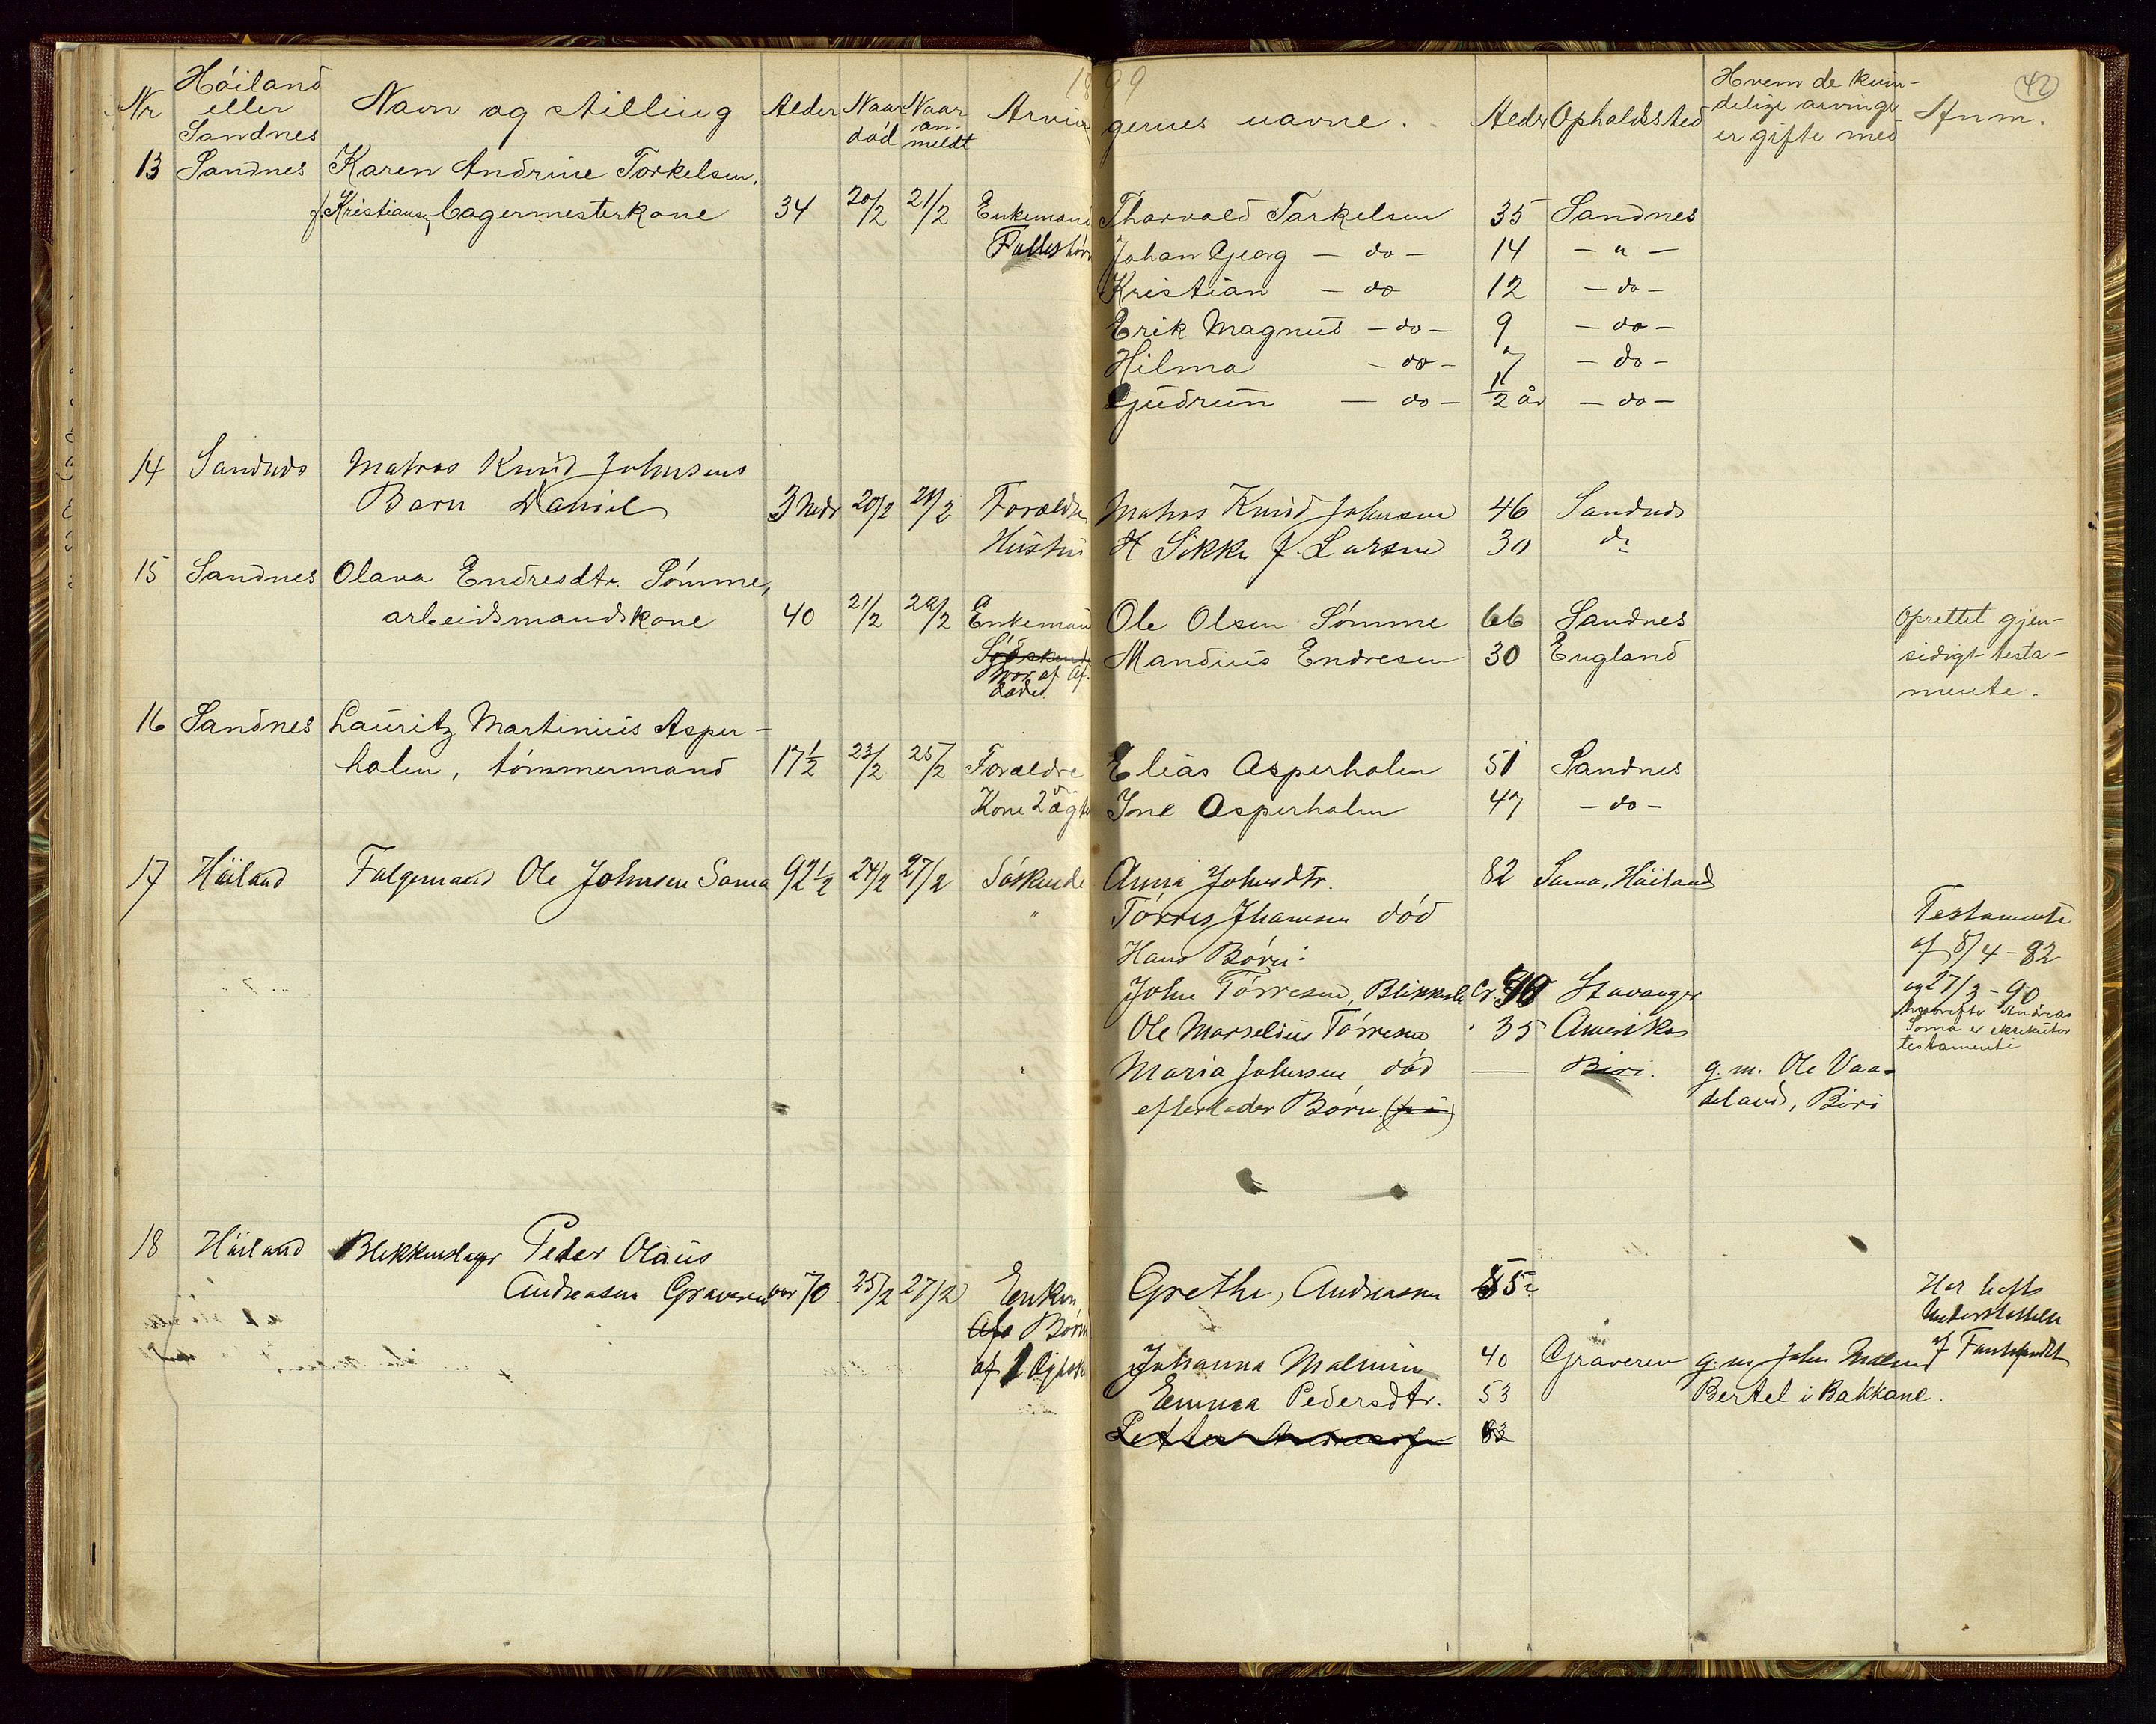 1899
42
Nr Höiland eller Sandnes Navn og stilling Alder Naar död Naar anmeldt Arvingernes navne. Alder Opholdssted Hvem de kvindelige arvinger er gifte med Anm.
13 Sandnes Karen Andrine Torkelsen,
f. Kristiansen, Lagermesterkone 34 20/2 21/2 Enkemand Thorvald Torkelsen 35 Sandnes
Fællesbörn Johan Georg - do - 14 - " -
Kristian - do 12 - do -
Erik Magnus - do - 9 - do -
Hilma - do - 7 - do -
Gudrun - do - 1/2 år - do -
14 Sandnes Matros Knud Johnsens
Barn Daniel 3 Mdr 20/2 21/2 Forældre Matros Knud Johnsen 46 Sandnes
Hustru H Sikke f. Larsen 30 do
15 Sandnes Olava Endresdtr. Sömme,
arbeidsmandskone 40 21/2 22/2 Enkemand Ole Olsen Sömme 66 Sandnes Oprettet gjen-
Södskend Mandius Endresen 30 England sidigt testa-
Bror af Af- mente.
döde
16 Sandnes Lauritz Martinius Asper-
holen, tömmermand 17 1/2 23/2 25/2 Forældre Elias Asperholen 51 Sandnes
Kone 2 ægt Ine Asperholen 47 - do -
17 Höiland Folgemand Ole Johnsen Soma 92 1/2 24/2 27/2 Söskende Anna Johnsdtr. 82 Soma, Höiland
" Törres Jhansen död Testamente
Hans Börn: af 8/4 - 82
John Törresen, Blikksl Cr. 40 Stavanger og 27/3 - 90
Ole Marselius Törresen " 35 Amerika Andreas Soma er eksekutor testamenti
Maria Johnsen, död — Biri. g. m. Ole Vaa-
efterlader Börn deland, Biri
18 Höiland Blikkenslager Peder Olaus
Andreasen Graveren 70 25/2 27/2 Enken Grethe, Andreasen 55 Har havt
Börn Understöttelse
af 1 Ægtesk Johanna Malmin 40 Graveren g. m. John Malmin af Fattigfondet
Emma Pedersdtr. 53 Bertel i Bakkane.
83